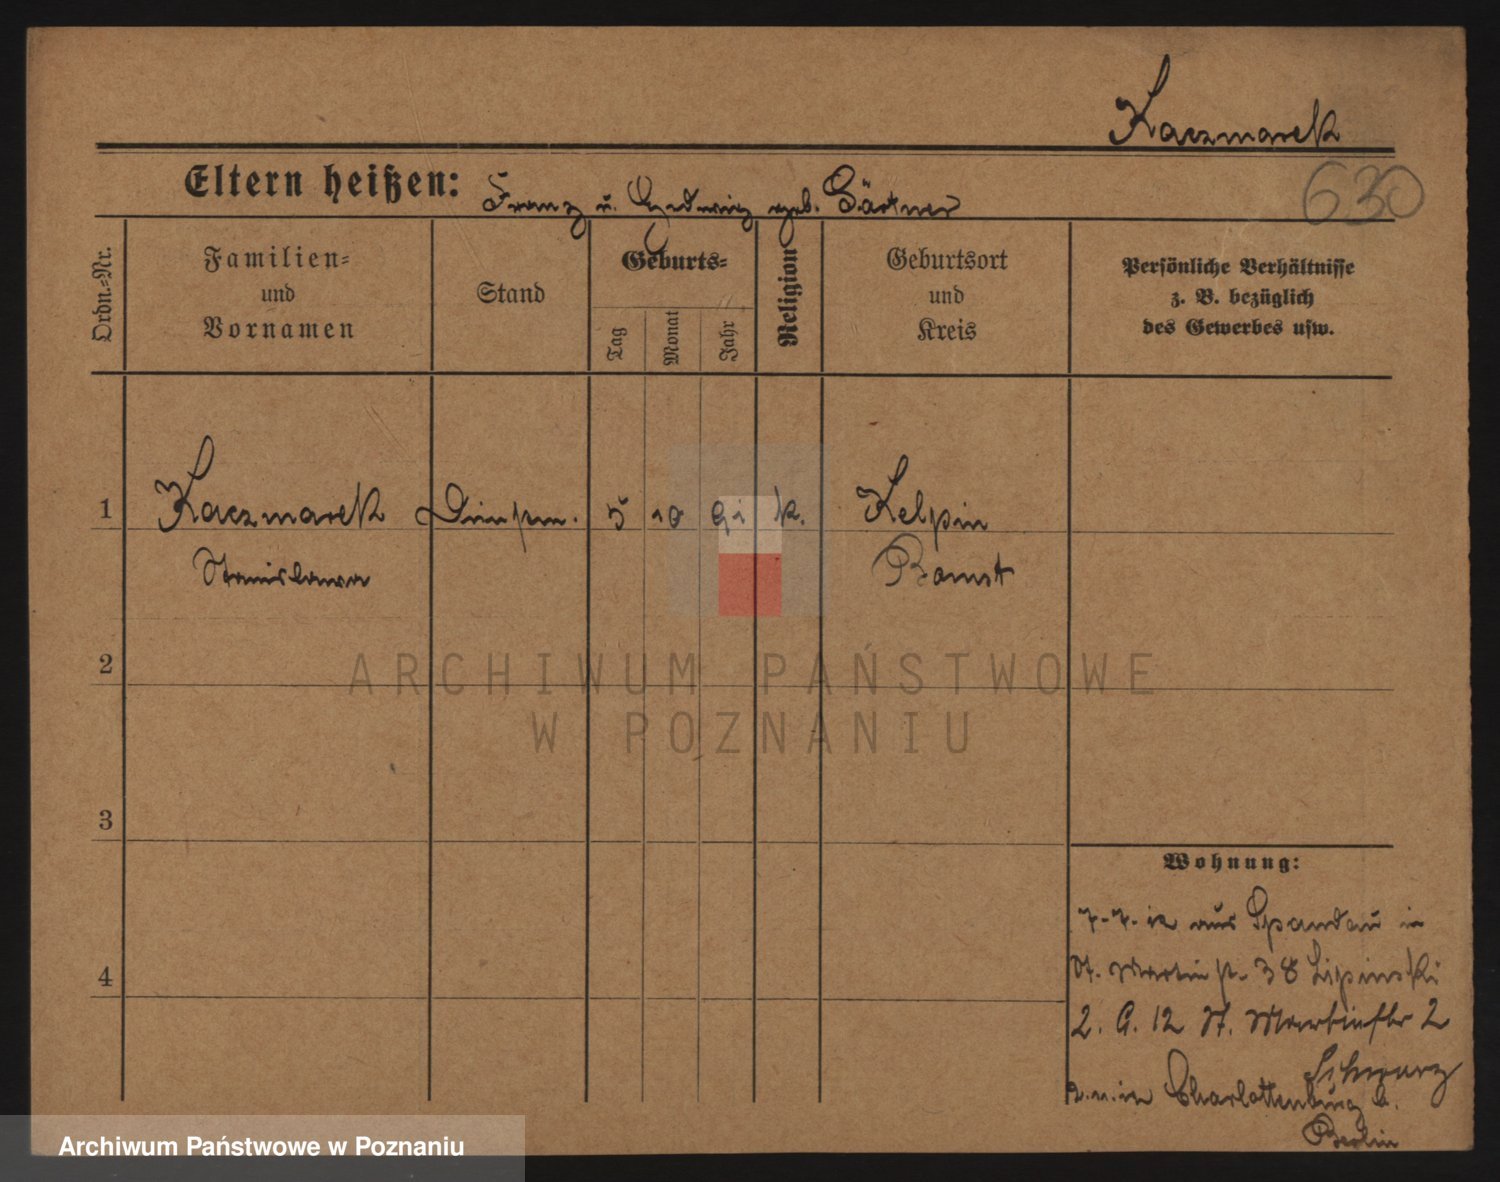 Kaczmarek
630
Eltern heißen: Franz u. Hedwig geb. Gärtner
Ordn.-Nr.
Familien-
und
Vornamen
Stand
Geburts-
Tag
Monat
Jahr
Religion
Geburtsort
und
Kreis
Persönliche Verhältnisse
z. B. bezüglich
des Gewerbes usw.
1 Kaczmarek 5 10 91 k. Kelpin
Stanislawa Bomst
2
3
4
Wohnung:
7-7-12 aus Spandau in
St. Martin 38 Lipinski
2. 9. 12 St. Martinstr 2
Schwarz
in Charlottenburg b.
Berlin
ARCHIWUM PAŃSTWOWE
W POZNANIU
Archiwum Państwowe w Poznaniu